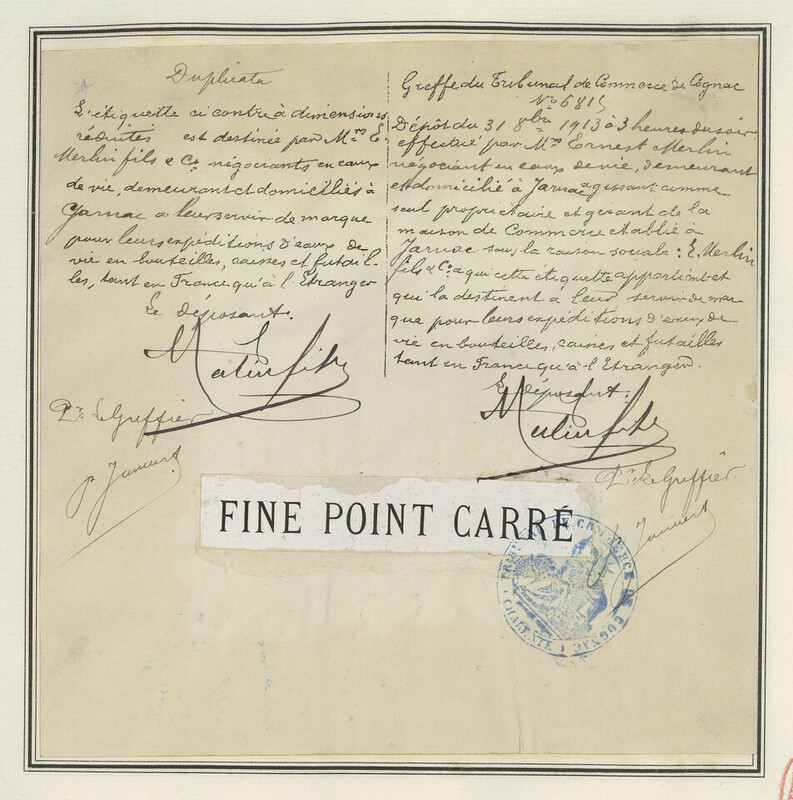 Duplicata
L'étiquette ci contre à dimensions
réduites est destinée par Mrs E.
Merlin fils & Cie négociants en eaux
de vie, demeurant et domiciliés à
Jarnac à leur servir de marque
pour leurs expéditions d'eaux de
vie en bouteilles, caisses et futail-
les, tant en France qu'à l'Etranger
Le déposant.
Merlin fils
Pr. Le Greffier
Greffe du Tribunal de Commerce de Cognac
No 6815
Dépôt du 31 8bre 1913 à 3 heures du soir
effectué par Mr Ernest Merlin
négociant en eaux de vie, demeurant
et domicilié à Jarnac agissant comme
seul propriétaire et gérant de la
maison de Commerce établie à
Jarnac sous la raison sociale : E. Merlin
fils & Cie à qui cette étiquette appartient et
qui la destinent à leur servir de mar
que pour leurs expéditions d'eaux de
vie en bouteilles, caisses et futailles
tant en France qu'à l'Etranger.
Le déposant.
Merlin fils
Pr. Le Greffier
FINE POINT CARRÉ
TRIBUNAL DE COMMERCE DE COGNAC
CHARENTE